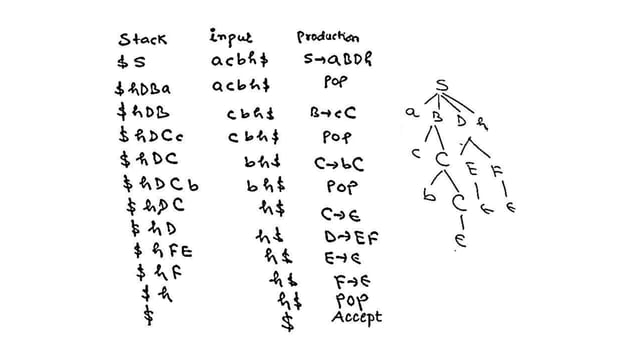 Stack input Production
$ S acbh$ S→aBDh
$hDBa acbh$ POP
$hDB cbh$ B→cC
$hDCc cbh$ POP
$hDC bh$ C→bC
$hDCb bh$ POP
$hDC h$ C→ϵ
$hD h$ D→EF
$hFE h$ E→ϵ
$hF h$ F→ϵ
$h h$ POP
$ $ Accept
S
a B D h
c C E F
b C ϵ ϵ
ϵ